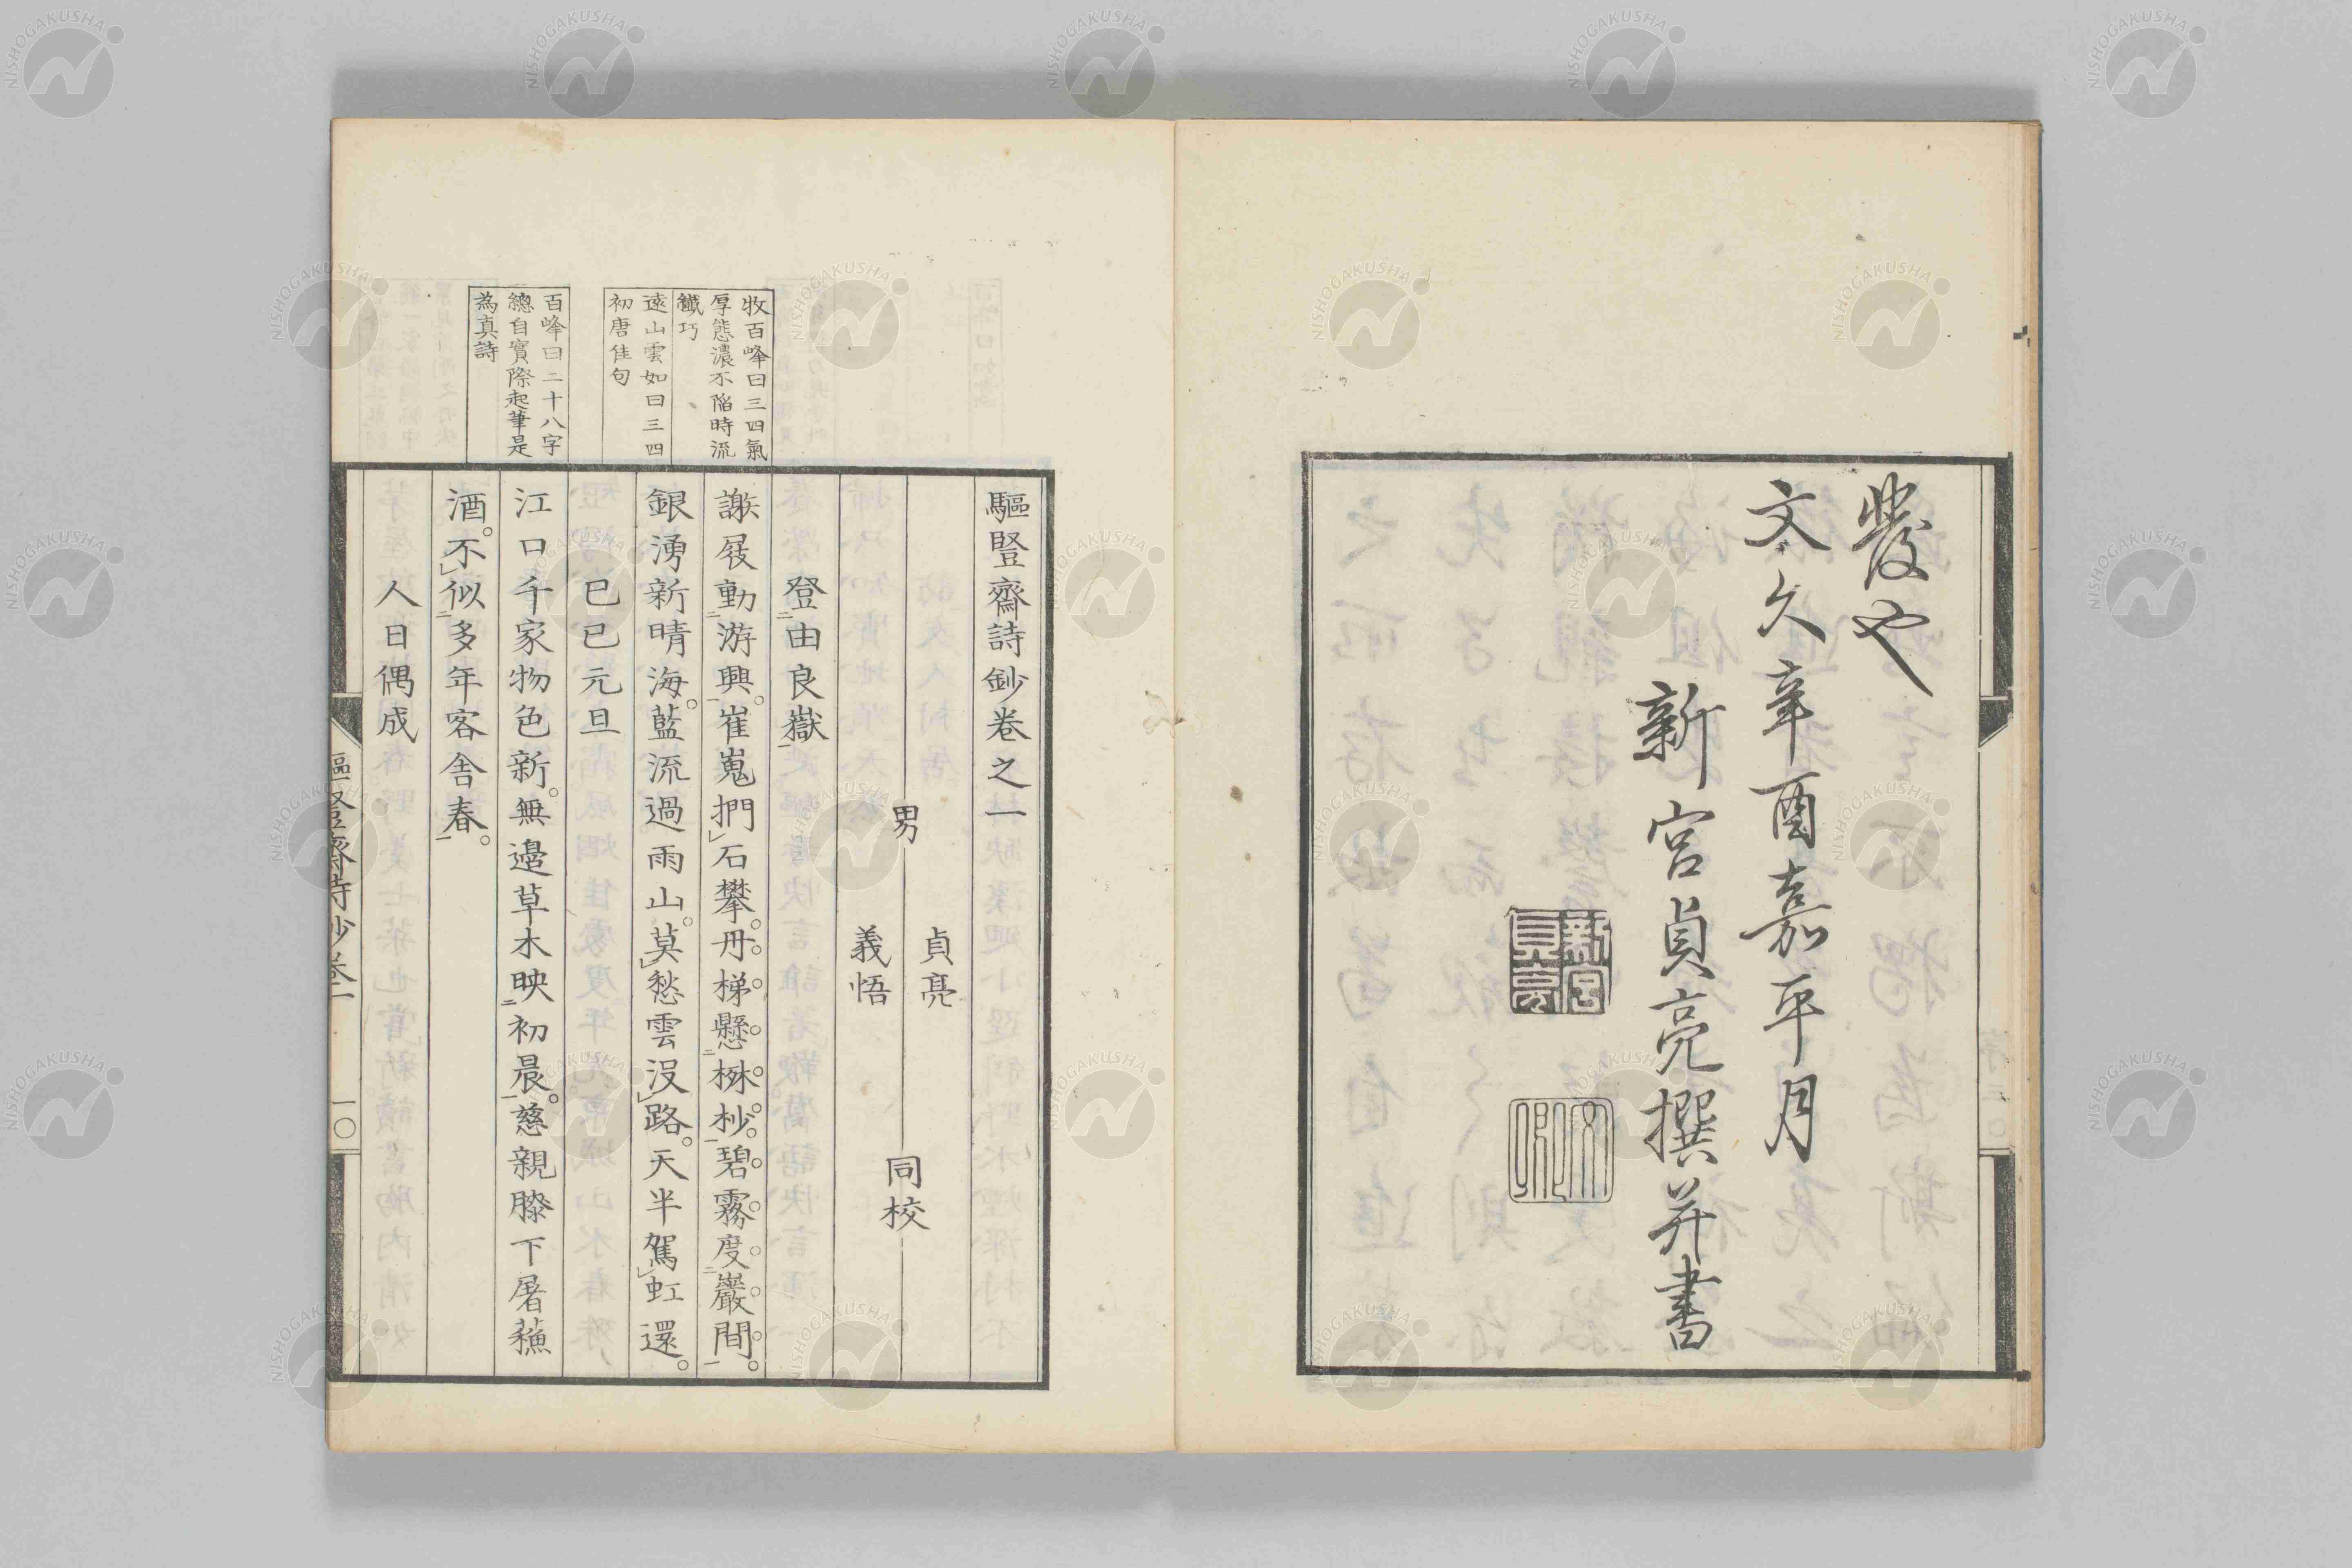 發也
文久辛酉嘉平月
新宮貞亮撰并書
新宮貞亮
驅豎齋詩鈔卷之一
男 貞亮
義悟 同校
登由良嶽
謝屐動游興崔嵬捫石攀丹梯懸樹杪碧霧度巖間
銀湧新晴海藍流過雨山莫愁雲沒路天半駕虹還
巳巳元旦
江口千家物色新無邊草木映初晨慈親膝下屠蘓
酒不似多年客舎春
人日偶成
牧百峰曰三四氣
厚態濃不陷時流
纖巧
遠山雲如曰三四
初唐佳句
百峰曰二十八字
總自實際起筆是
為真詩
驅豎齋詩鈔卷一
一〇
NISHOGAKUSHA